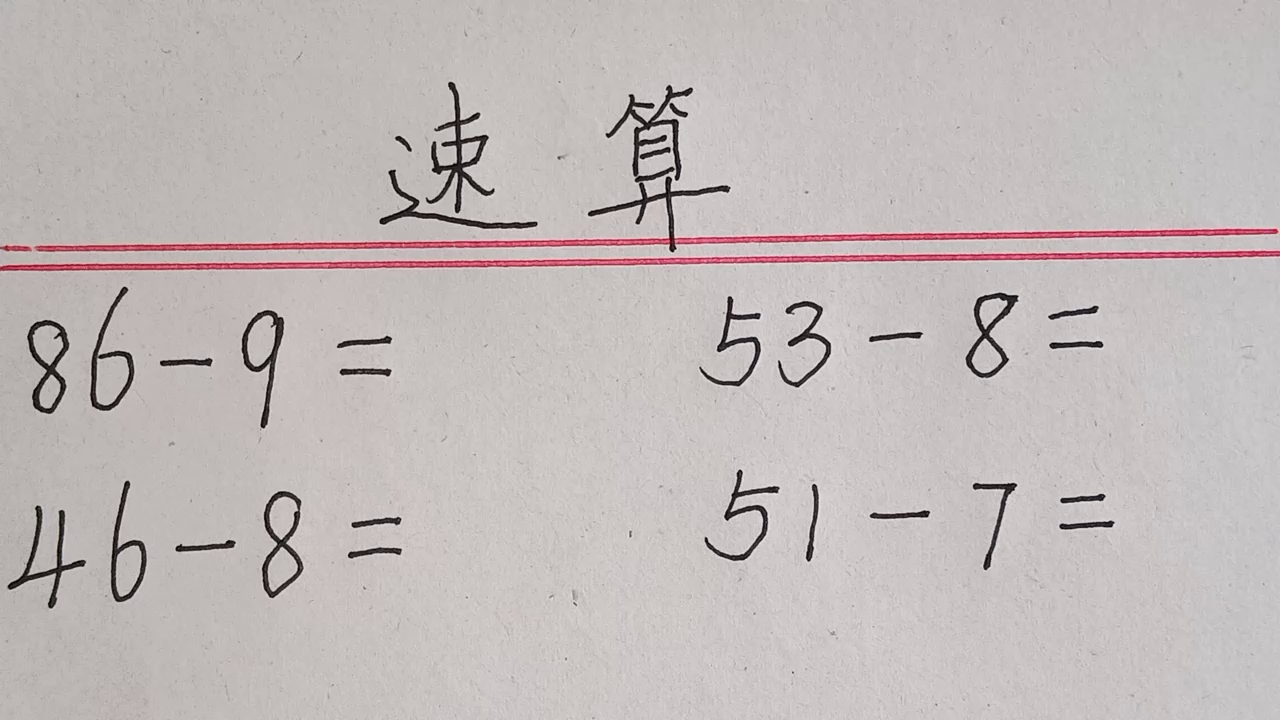 速算
86-9= 53-8=
46-8= 51-7=